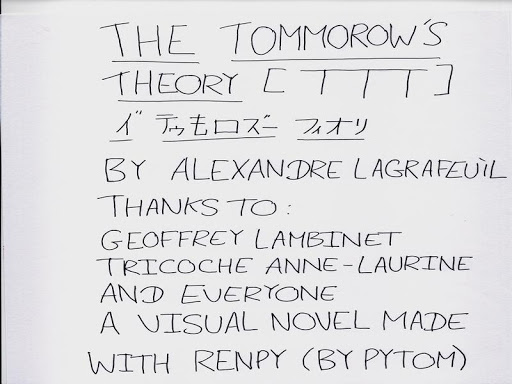 THE TOMMOROW'S
THEORY [TTT]
ず テゥモロズー フィオリ
BY ALEXANDRE LAGRAFEUIL
THANKS TO:
GEOFFREY LAMBINET
TRICOCHE ANNE-LAURINE
AND EVERYONE
A VISUAL NOVEL MADE
WITH RENPY (BY PYTOM)